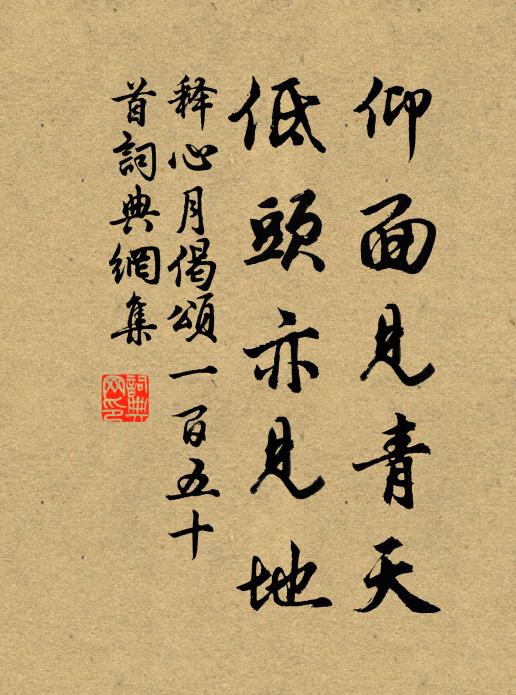 仰面見青天
低頭亦見地
释心月偈頌一百五十
首詞典網集
詞典
网印